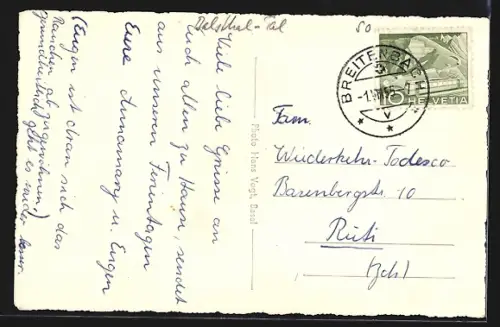 Balsthal-Tal
50
Viele liebe Grüsse an
Euch allen zu Hause, sendet
aus unseren Ferientagen
Eure Annamary u. Eugen
(Eugen ist daran sich das
Rauchen abzugewöhnen,
gesundheitlich geht es wieder besser.)
Photo Hans Vogt, Basel
BREITENBACH
10 HELVETIA
Fam.
Wiederkehr-Todesco
Barenbergstr. 10
Rüti
(Zch)